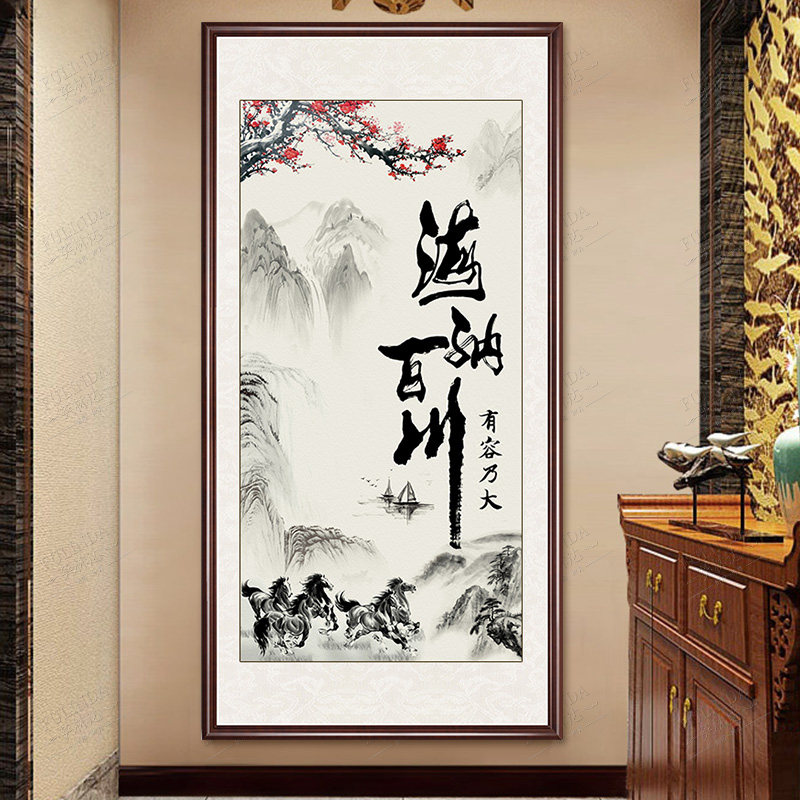 海纳
百川
有容乃大
FULLIDA